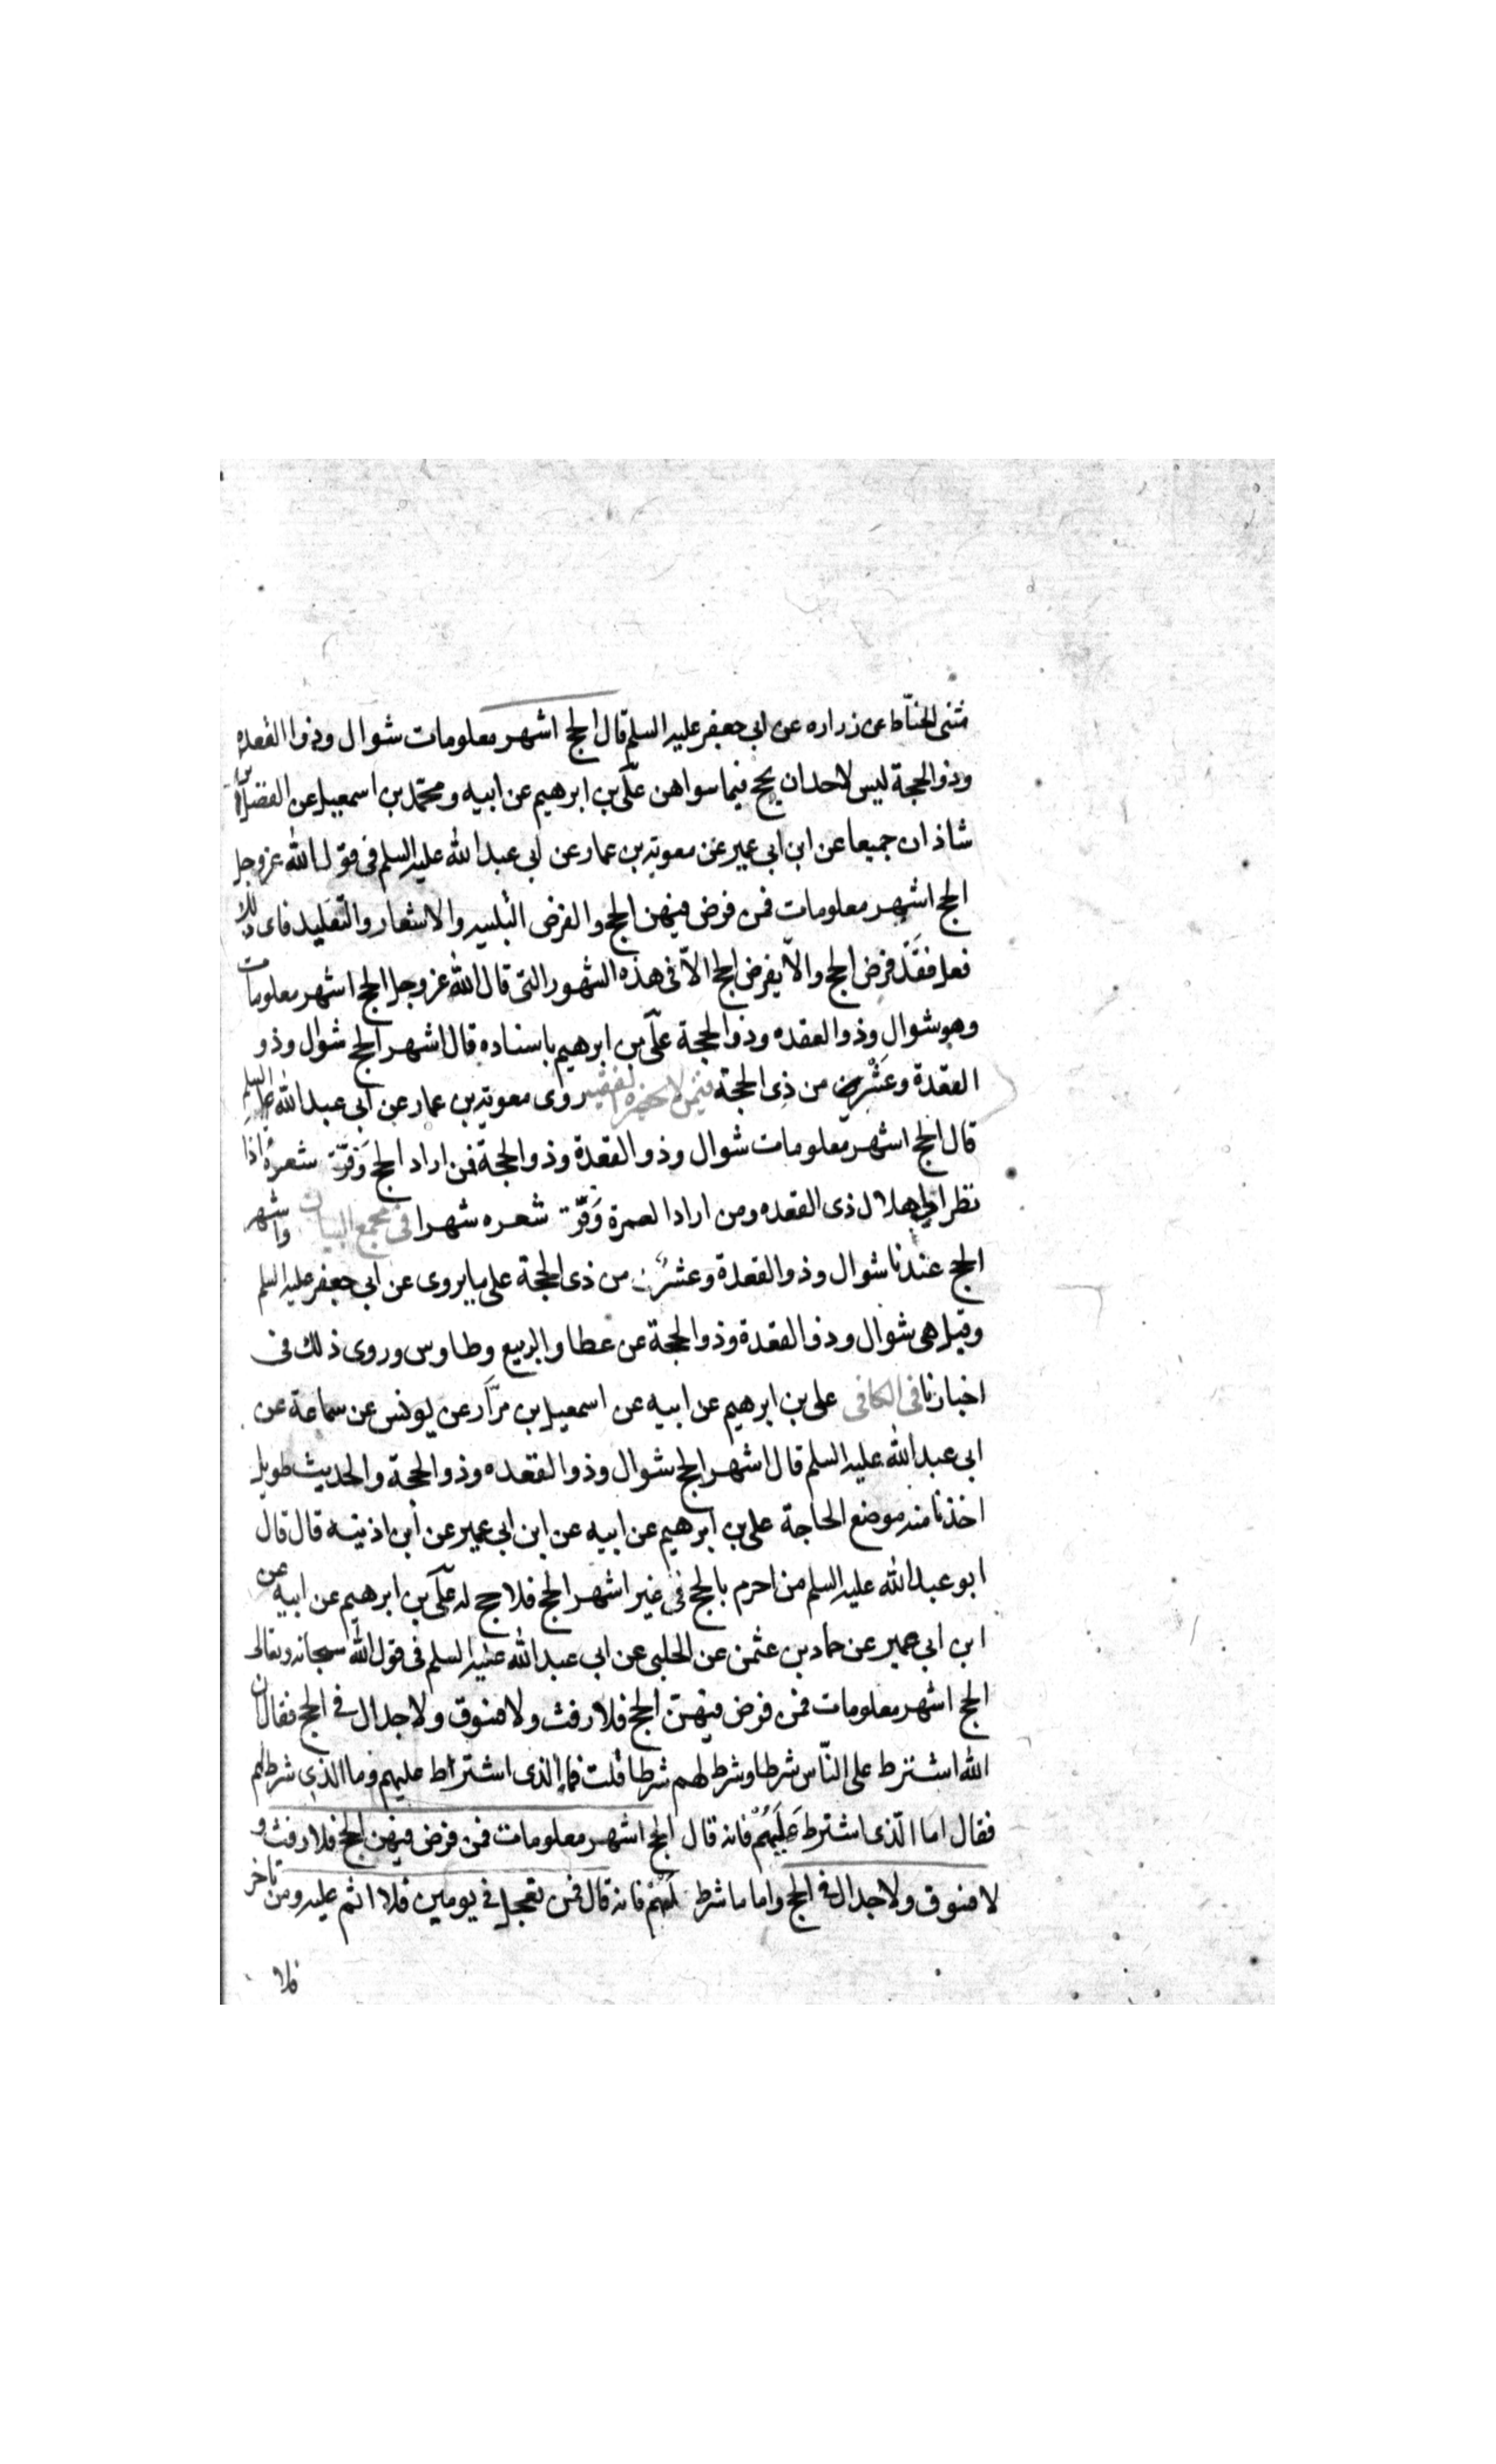 مثنى الحنّاط عن زراره عن ابى جعفر عليه السلم قال الحج اشهر معلومات شوال وذوا القعده
وذو الحجة ليس لاحد ان يحج فيما سواهن علّى بن ابرهيم عن ابيه ومحمّد بن اسمعيل عن الفضل بن
شاذان جميعا عن ابن ابى عمير عن معوية بن عمار عن ابى عبد الله عليه السلم فى قول الله عز وجل
الحج اشهر معلومات فمن فرض فيهن الحج والفرض التلبيه والاشعار والتّقليد فاى ذلك
فعل فقَدْ فرض الحج والّا يفرض الحج الّا فى هذه الشهور التى قال الله عز وجل الحج اشهر معلومات
وهو شوال وذو العقده وذو الحجة علّى بن ابرهيم باسناده قال اشهر الحج شوال وذو
القعدة وعَشْر من ذِى الحجة فيمن لا يحضره الفقيه روى معوية بن عمار عن ابى عبد الله عليه السلم
قال الحج اشهر معلومات شوال وذو القعدة وذو الحجة فمن اراد الحج وَفّرَ شعرهُ اذا
نظر الى هلال ذى القعده ومن اراد العمرة وَفّرَ شعره شهرا فى مجمع البيان واشهر
الحج عندنا شوال وذو القعدة وعشر من ذى الحجة على ما يروى عن ابى جعفر عليه السلم
وقيل هى شوال وذو القعدة وذو الحجة عن عطا والربيع وطاوس وروى ذلك فى
اخبارنا فى الكافى على بن ابرهيم عن ابيه عن اسمعيل بن مرّار عن يونس عن سماعة عن
ابى عبد الله عليه السلم قال اشهر الحج شوال وذو القعده وذو الحجة والحديث طويل
اخذنا منه موضع الحاجة على بن ابرهيم عن ابيه عن ابن ابى عمير عن ابن اذينه قال قال
ابو عبد الله عليه السلم من احرم بالحج فى غير اشهر الحج فلا حج له علّى بن ابرهيم عن ابيه عن
ابن ابى عمير عن حماد بن عثمن عن الحلبى عن ابى عبد الله عليه السلم فى قول الله سبحانه وتعالى
الحج اشهر معلومات فمن فرض فيهنّ الحج فلا رفث ولا فسوق ولا جدال فى الحج فقال ان
الله اشترط على النّاس شرطا وشرط لهم شرطا قلت فما الذى اشتراط عليهم وما الذى شرط لهم
فقال اما الّذى اشترط عَلَيْهُمْ فانه قال الحج اشهر معلومات فمن فرض فيهن الحج فلا رفث و
لا فسوق ولا جدال فى الحج واما ما شرط لَهُمْ فانه قال فمن تعجل فى يومين فلا اثم عليه ومن تاخر
فلا